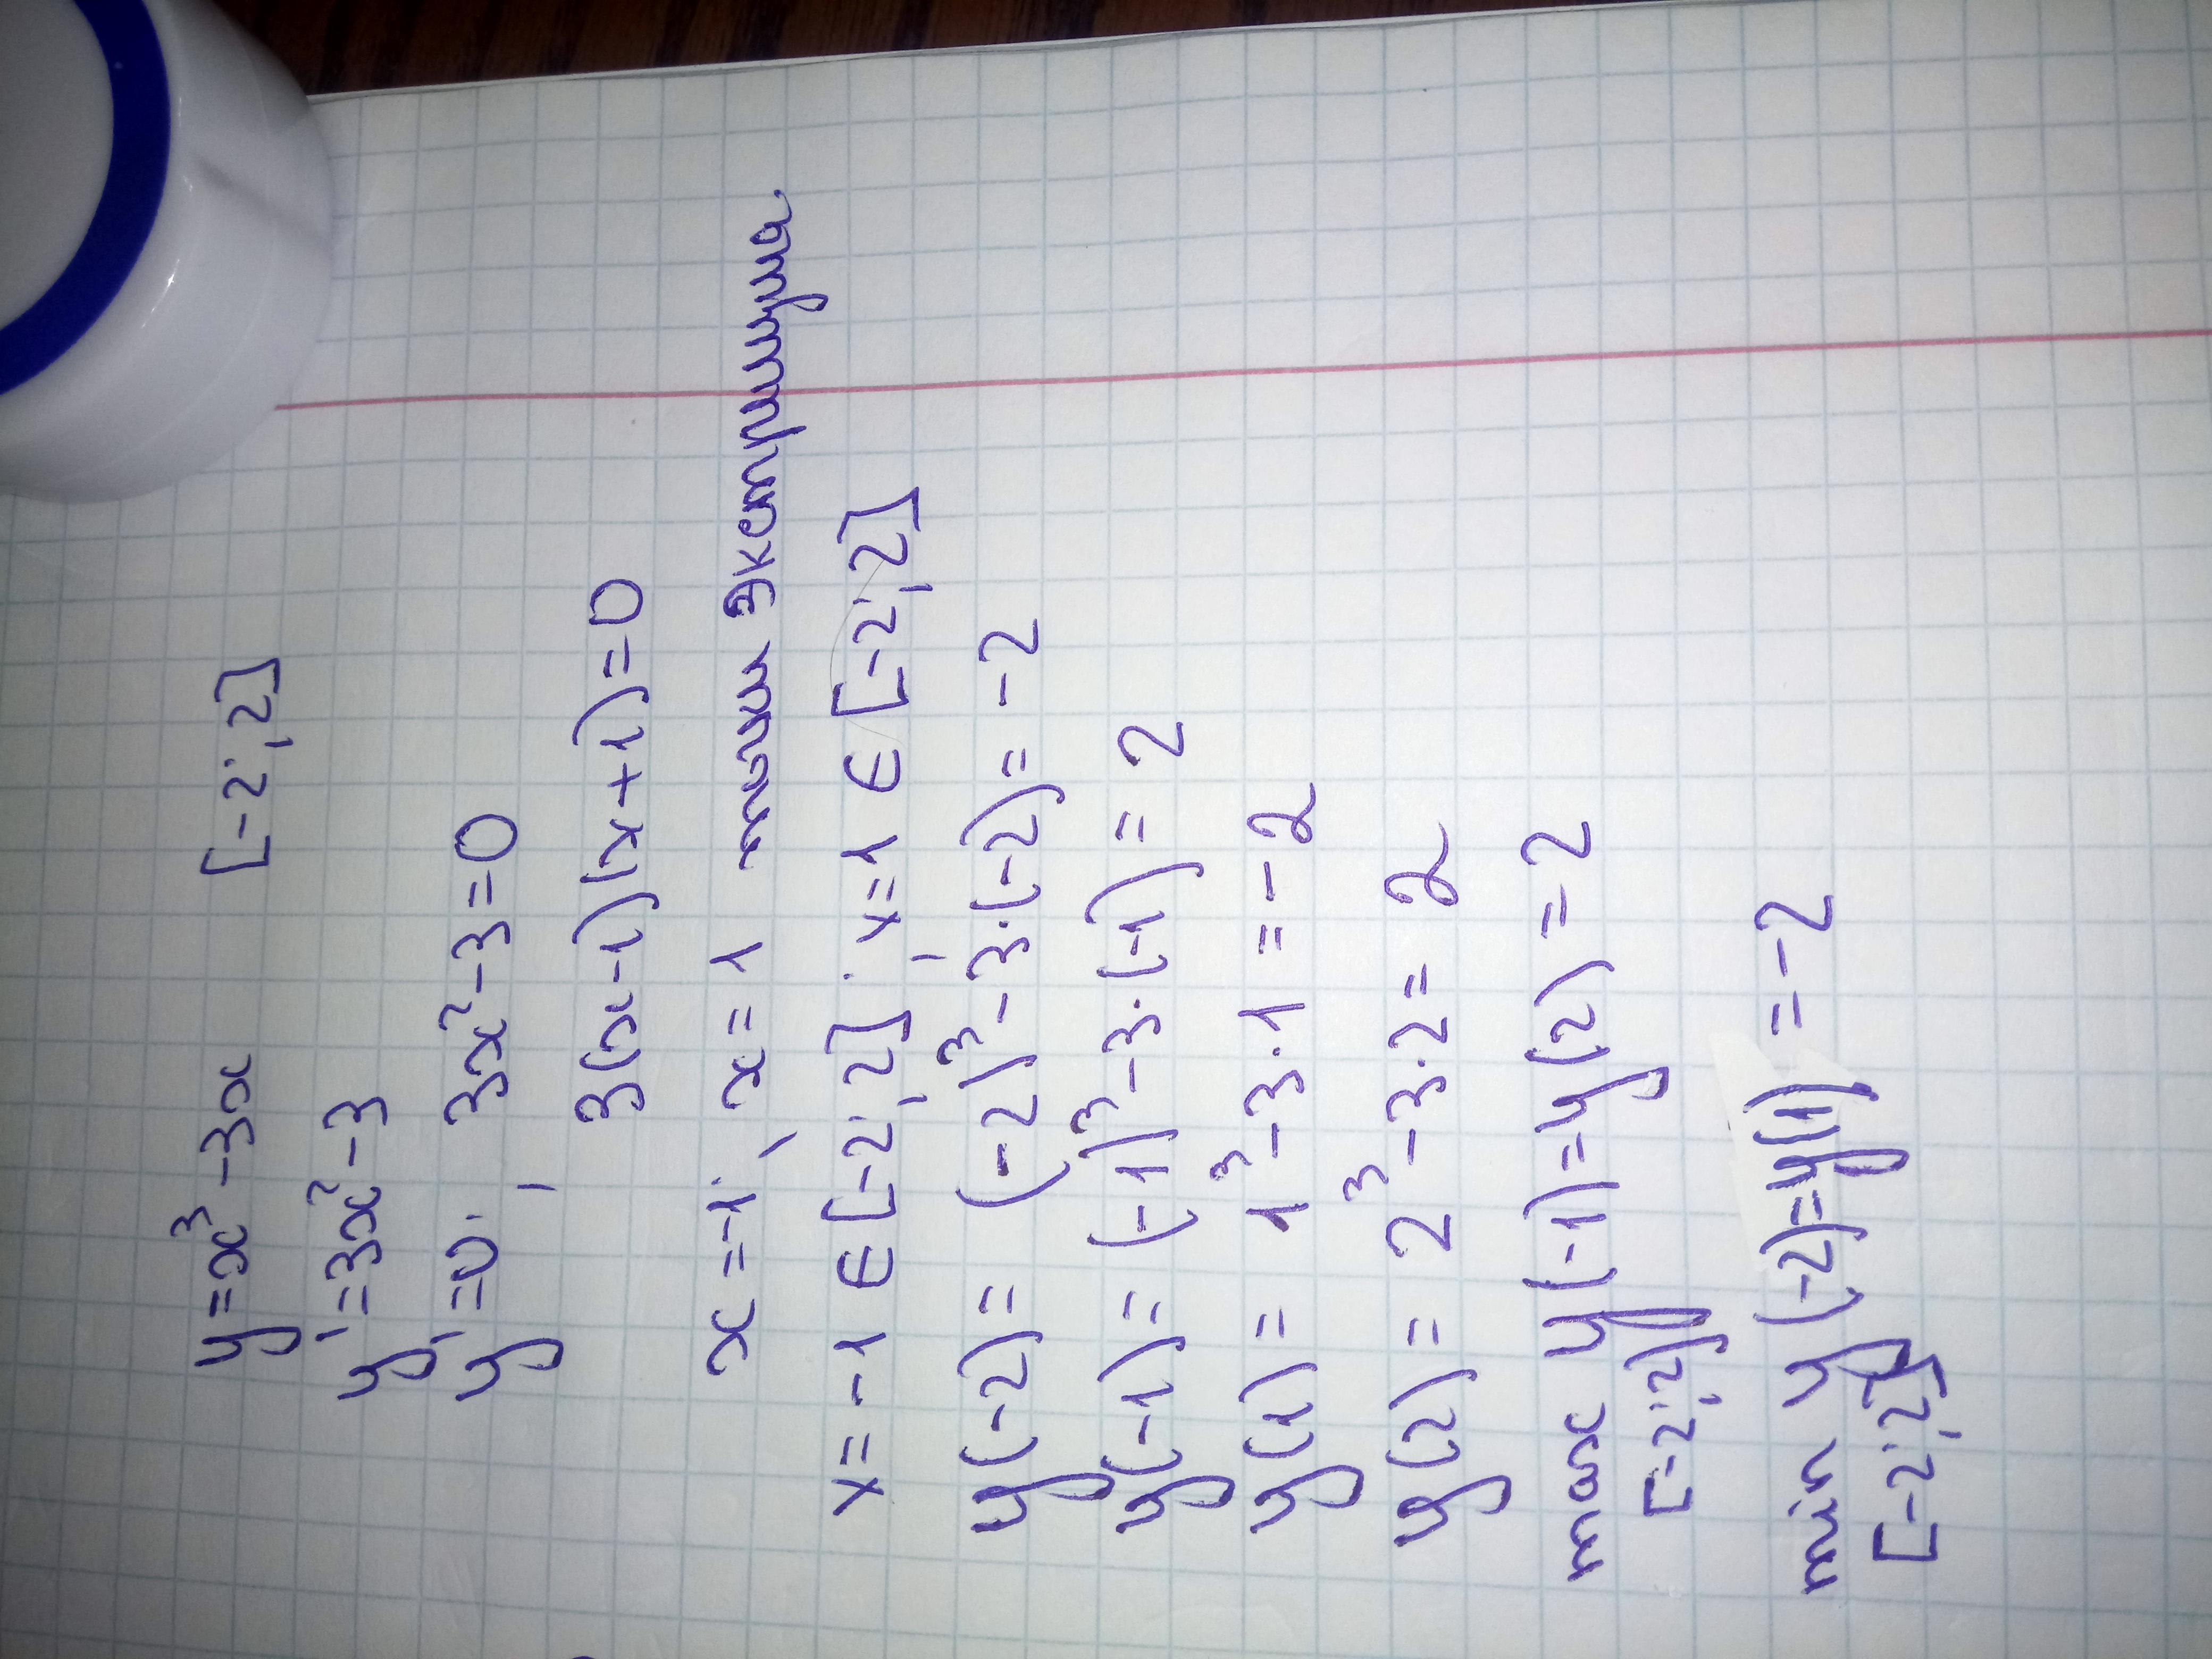 y=x³-3x [-2;2]
y'=3x²-3
y'=0; 3x²-3=0
3(x-1)(x+1)=0
x=-1; x=1 точки экстримума
x=-1 ∈ [-2;2]; x=1 ∈ [-2;2]
y(-2)= (-2)³-3·(-2)=-2
y(-1)= (-1)³-3·(-1)= 2
y(1)= 1³-3·1=-2
y(2)= 2³-3·2= 2
max y(-1)=y(2)=2
[-2;2]
min y(-2)=y(1)=-2
[-2;2]